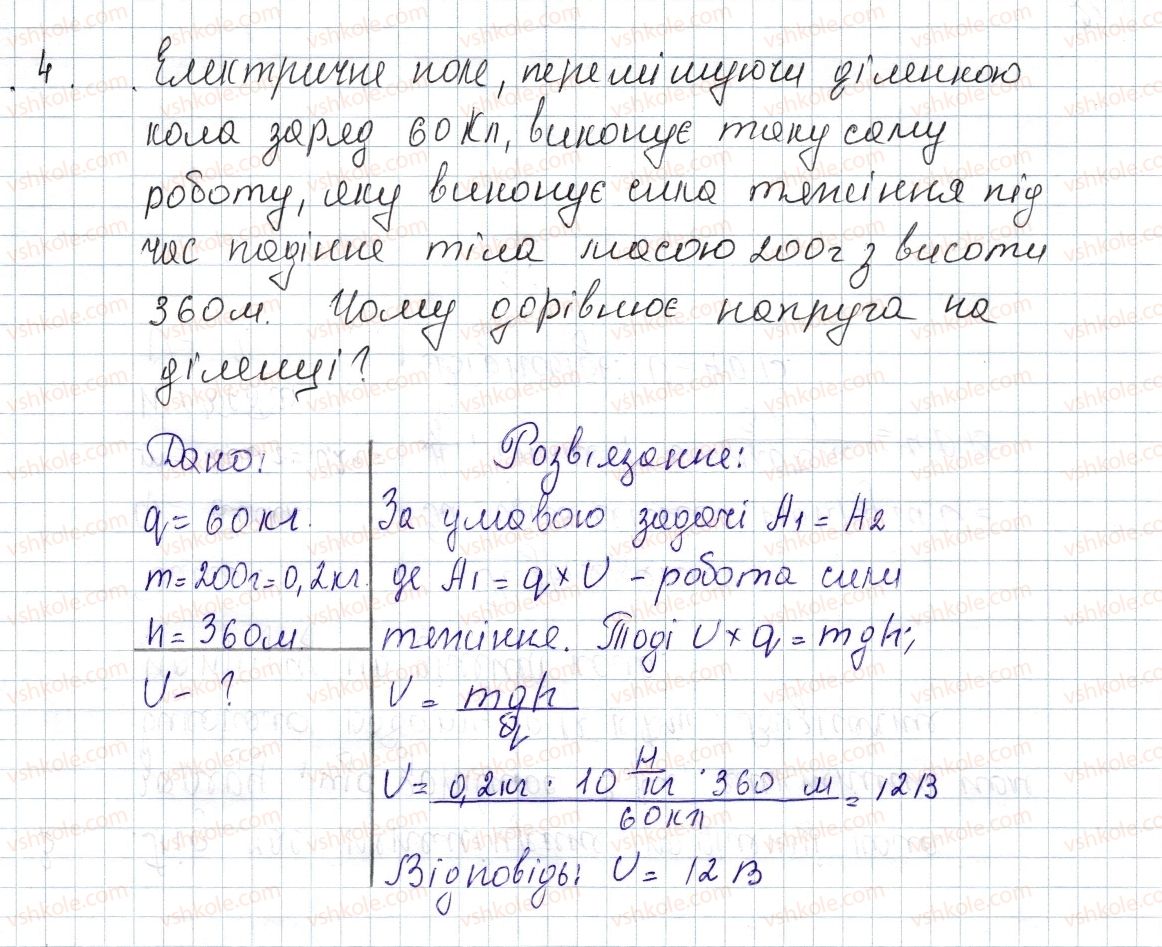 4. Електричне поле, переміщуючи ділянкою
кола заряд 60 Кл, виконує таку саму
роботу, яку виконує сила тяжіння під
час падіння тіла масою 200г з висоти
360м. Чому дорівнює напруга на
ділянці?
Дано:
q = 60 кл.
m = 200г = 0,2 кг.
h = 360м.
U - ?
Розвіязання:
За умавою задачі A1 = A2
де A1 = q × U - робота сили
тяжіння. Тоді U × q = mgh;
U = mgh / q
U = 0,2 кг · 10 Н/кг · 360 м / 60 кл = 12 В
Відповідь: U = 12 В
vshkole.com